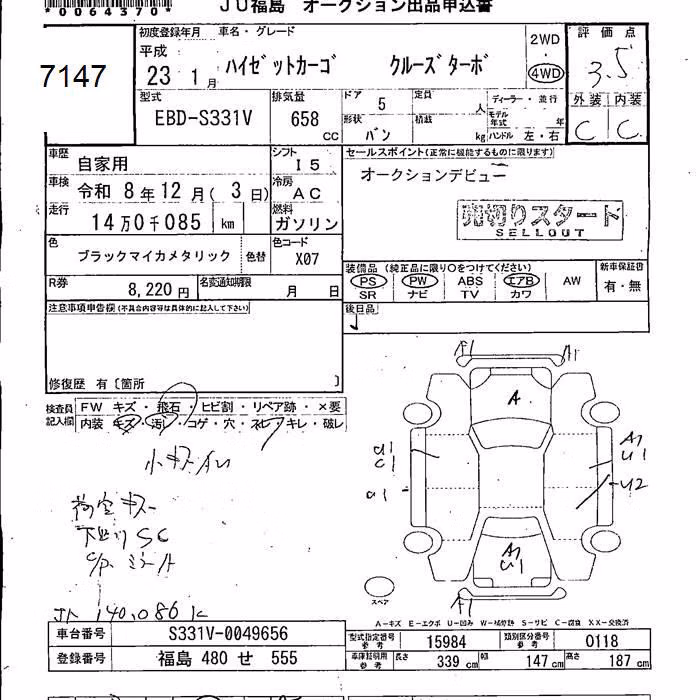 *0064370*
JU福島 オークション出品申込書
7147
初度登録年月 車名・グレード
平成 23 1月 ハイゼットカーゴ クルーズターボ
2WD ・ 4WD
評価点 3.5
外装 内装
C C
型式 EBD-S331V
排気量 658 CC
ドア 5 定員 人
形状 バン 積載 kg
ディーラー・並行
モデル年式 年
ハンドル 左・右
車歴 自家用
シフト I5
車検 令和 8年 12月( 3日)
冷房 AC
走行 14万0千085 km
燃料 ガソリン
色 ブラックマイカメタリック 色替
色コード X07
R券 8,220円
名変通知期限 月 日
セールスポイント(正常に機能するものに限ります)
オークションデビュー
売切りスタート
SELLOUT
装備品 (純正品に限り○をつけてください)
PS PW ABS エアB AW
SR ナビ TV カワ
新車保証書 有・無
後日品
注意事項申告欄(不具合内容等は具体的に記入して下さい)
修復歴 有〔箇所 〕
検査員記入欄
FW キズ・飛石・ヒビ割・リペア跡・×要
内装 キズ・汚レ・コゲ・穴・スレ・キレ・破レ
小キズ
下廻りSC
140,086K
A1 A1
A
U1
C1
A1
U1
U2
A1
U1
A1
スペア
A-キズ E-エクボ U-凹み W-補修跡 S-サビ C-腐食 XX-交換済
車台番号 S331V-0049656
登録番号 福島 480 せ 555
型式指定番号 参考 15984
類別区分番号 参考 0118
車庫証明用 参考 長さ 339 cm 幅 147 cm 高さ 187 cm